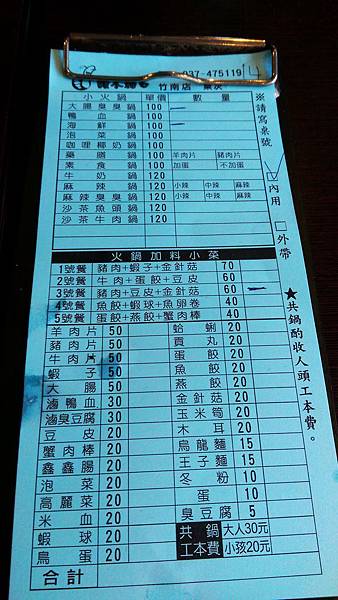 037-475119 14
竹南店
小火鍋 單價 數量
大腸臭臭鍋 100
鴨血鍋 100
海鮮鍋 100
泡菜鍋 100
咖哩椰奶鍋 100
藥膳鍋 100 羊肉片 豬肉片
素食鍋 100 加蛋 不加蛋
牛奶鍋 120
麻辣鍋 120 小辣 中辣 麻辣
麻辣臭臭鍋 120 小辣 中辣 麻辣
沙茶魚頭鍋 120
沙茶牛肉鍋 120
※請寫桌號
內用
外帶
★共鍋酌收人頭工本費。
火鍋加料小菜
1號餐 豬肉+蝦子+金針菇 70
2號餐 牛肉+蛋餃+豆皮 60
3號餐 豬肉+豆皮+金針菇 60
4號餐 魚餃+蝦球+魚卵卷 40
5號餐 蛋餃+燕餃+蟹肉棒 40
羊肉片 50 蛤蜊 20
豬肉片 50 貢丸 20
牛肉片 50 蛋餃 20
蝦子 50 魚餃 20
大腸 50 燕餃 20
滷鴨血 30 金針菇 20
滷臭豆腐 30 玉米筍 20
豆皮 20 木耳 20
蟹肉棒 20 烏龍麵 15
鑫鑫腸 20 王子麵 15
泡菜 20 冬粉 10
高麗菜 20 蛋 10
米血 20 臭豆腐 5
蝦球 20 共鍋 大人30元
鳥蛋 20 工本費 小孩20元
合計